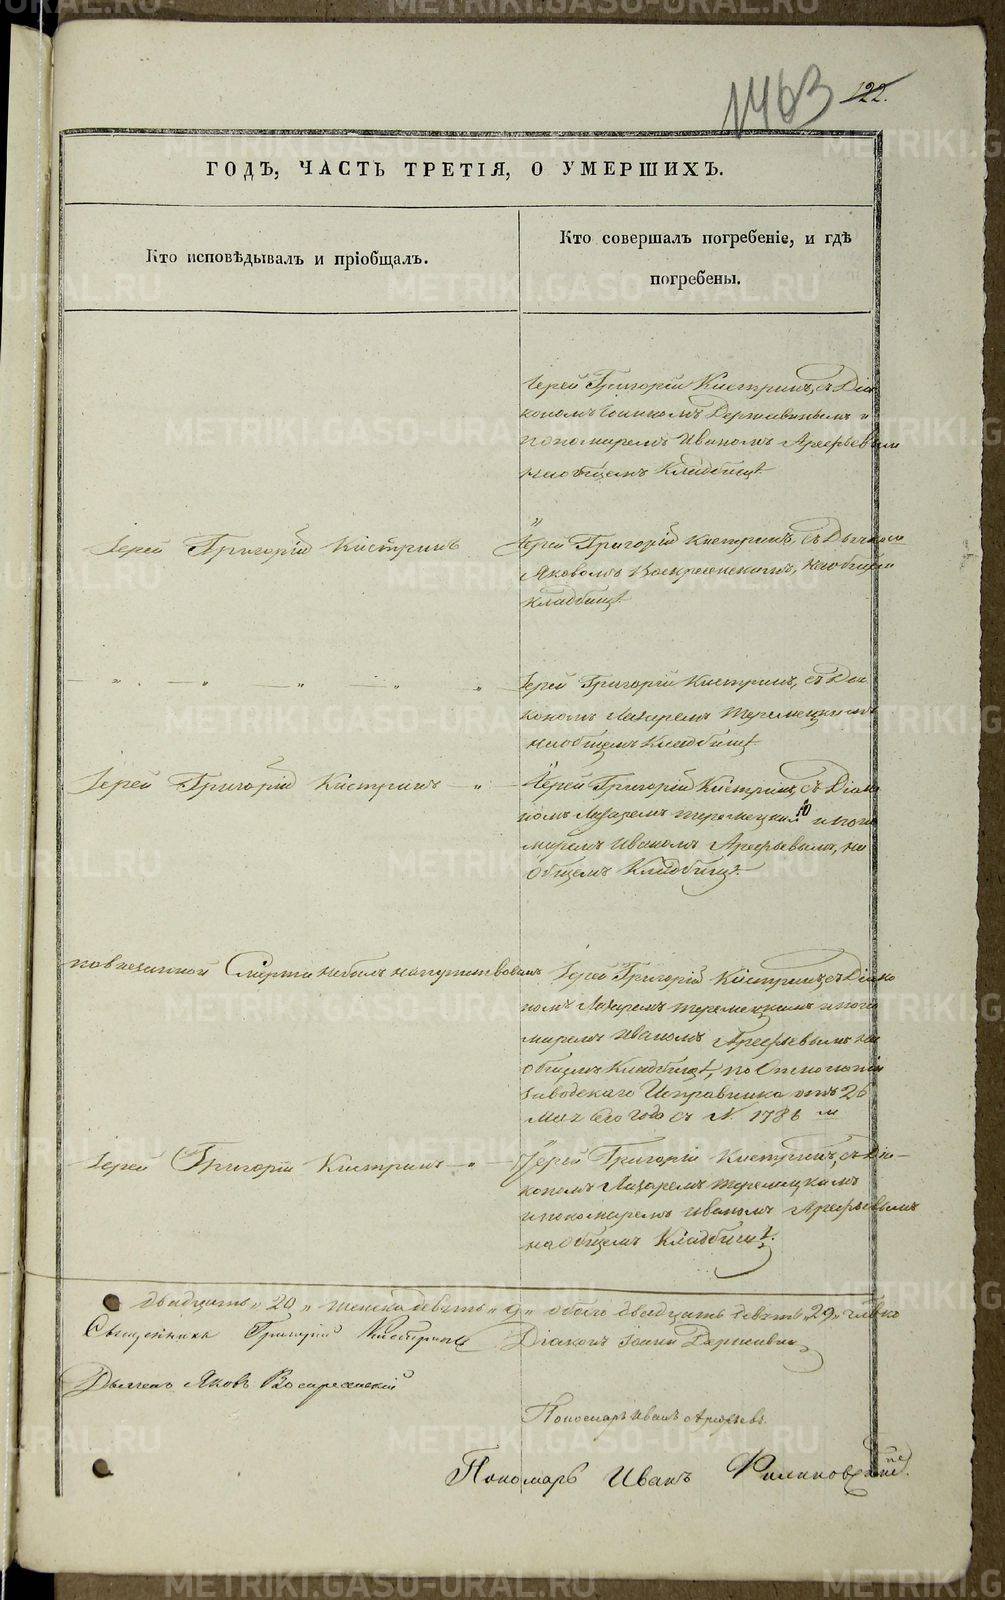 1463
122.
ГОДЪ, ЧАСТЬ ТРЕТІЯ, О УМЕРШИХЪ.
Кто исповѣдывалъ и пріобщалъ.
Кто совершалъ погребеніе, и гдѣ
погребены.
Іерей Григорій Кистринъ, съ Діа
кономъ Іоанномъ Державинымъ и
пономаремъ Иваномъ Арефьевым
на общемъ Кладбищѣ.
Іерей Григорій Кистринъ
Іерей Григорій Кистринъ, съ Дьячком
Яковомъ Воскресенскимъ, на общем
кладбищѣ.
Іерей Григорій Кистринъ, съ Діа
кономъ Лазаремъ
на общемъ Кладбищѣ
Іерей Григорій Кистринъ
Іерей Григорій Кистринъ, съ Діако
номъ Лазаремъ и поно
маремъ Иваномъ Арефьевымъ, на
общемъ Кладбищѣ.
по внезапной Смерти небылъ напутствованъ
Іерей Григорій Кистринъ, съ Діако
номъ Лазаремъ и поно
маремъ Иваномъ Арефьевымъ на
общемъ Кладбищѣ, по Отношенію
заводскаго Исправника отъ 26
Мая сего года съ N. 1786 м
Іерей Григорій Кистринъ
Іерей Григорій Кистринъ, съ Діа-
кономъ Лазаремъ
и пономаремъ Иваномъ Арефьевымъ
на общемъ Кладбищѣ.
двадцать „ 20 „ женска девять „ 9 „ обоего двадцать девять „ 29 „
Священникъ Григорій Кистринъ
Діаконъ Іоаннъ Державинъ
Дьячекъ Яковъ Воскресенскій
Пономарь Иванъ Арефьевъ.
Пономарь Иванъ
METRIKI.GASO-URAL.RU